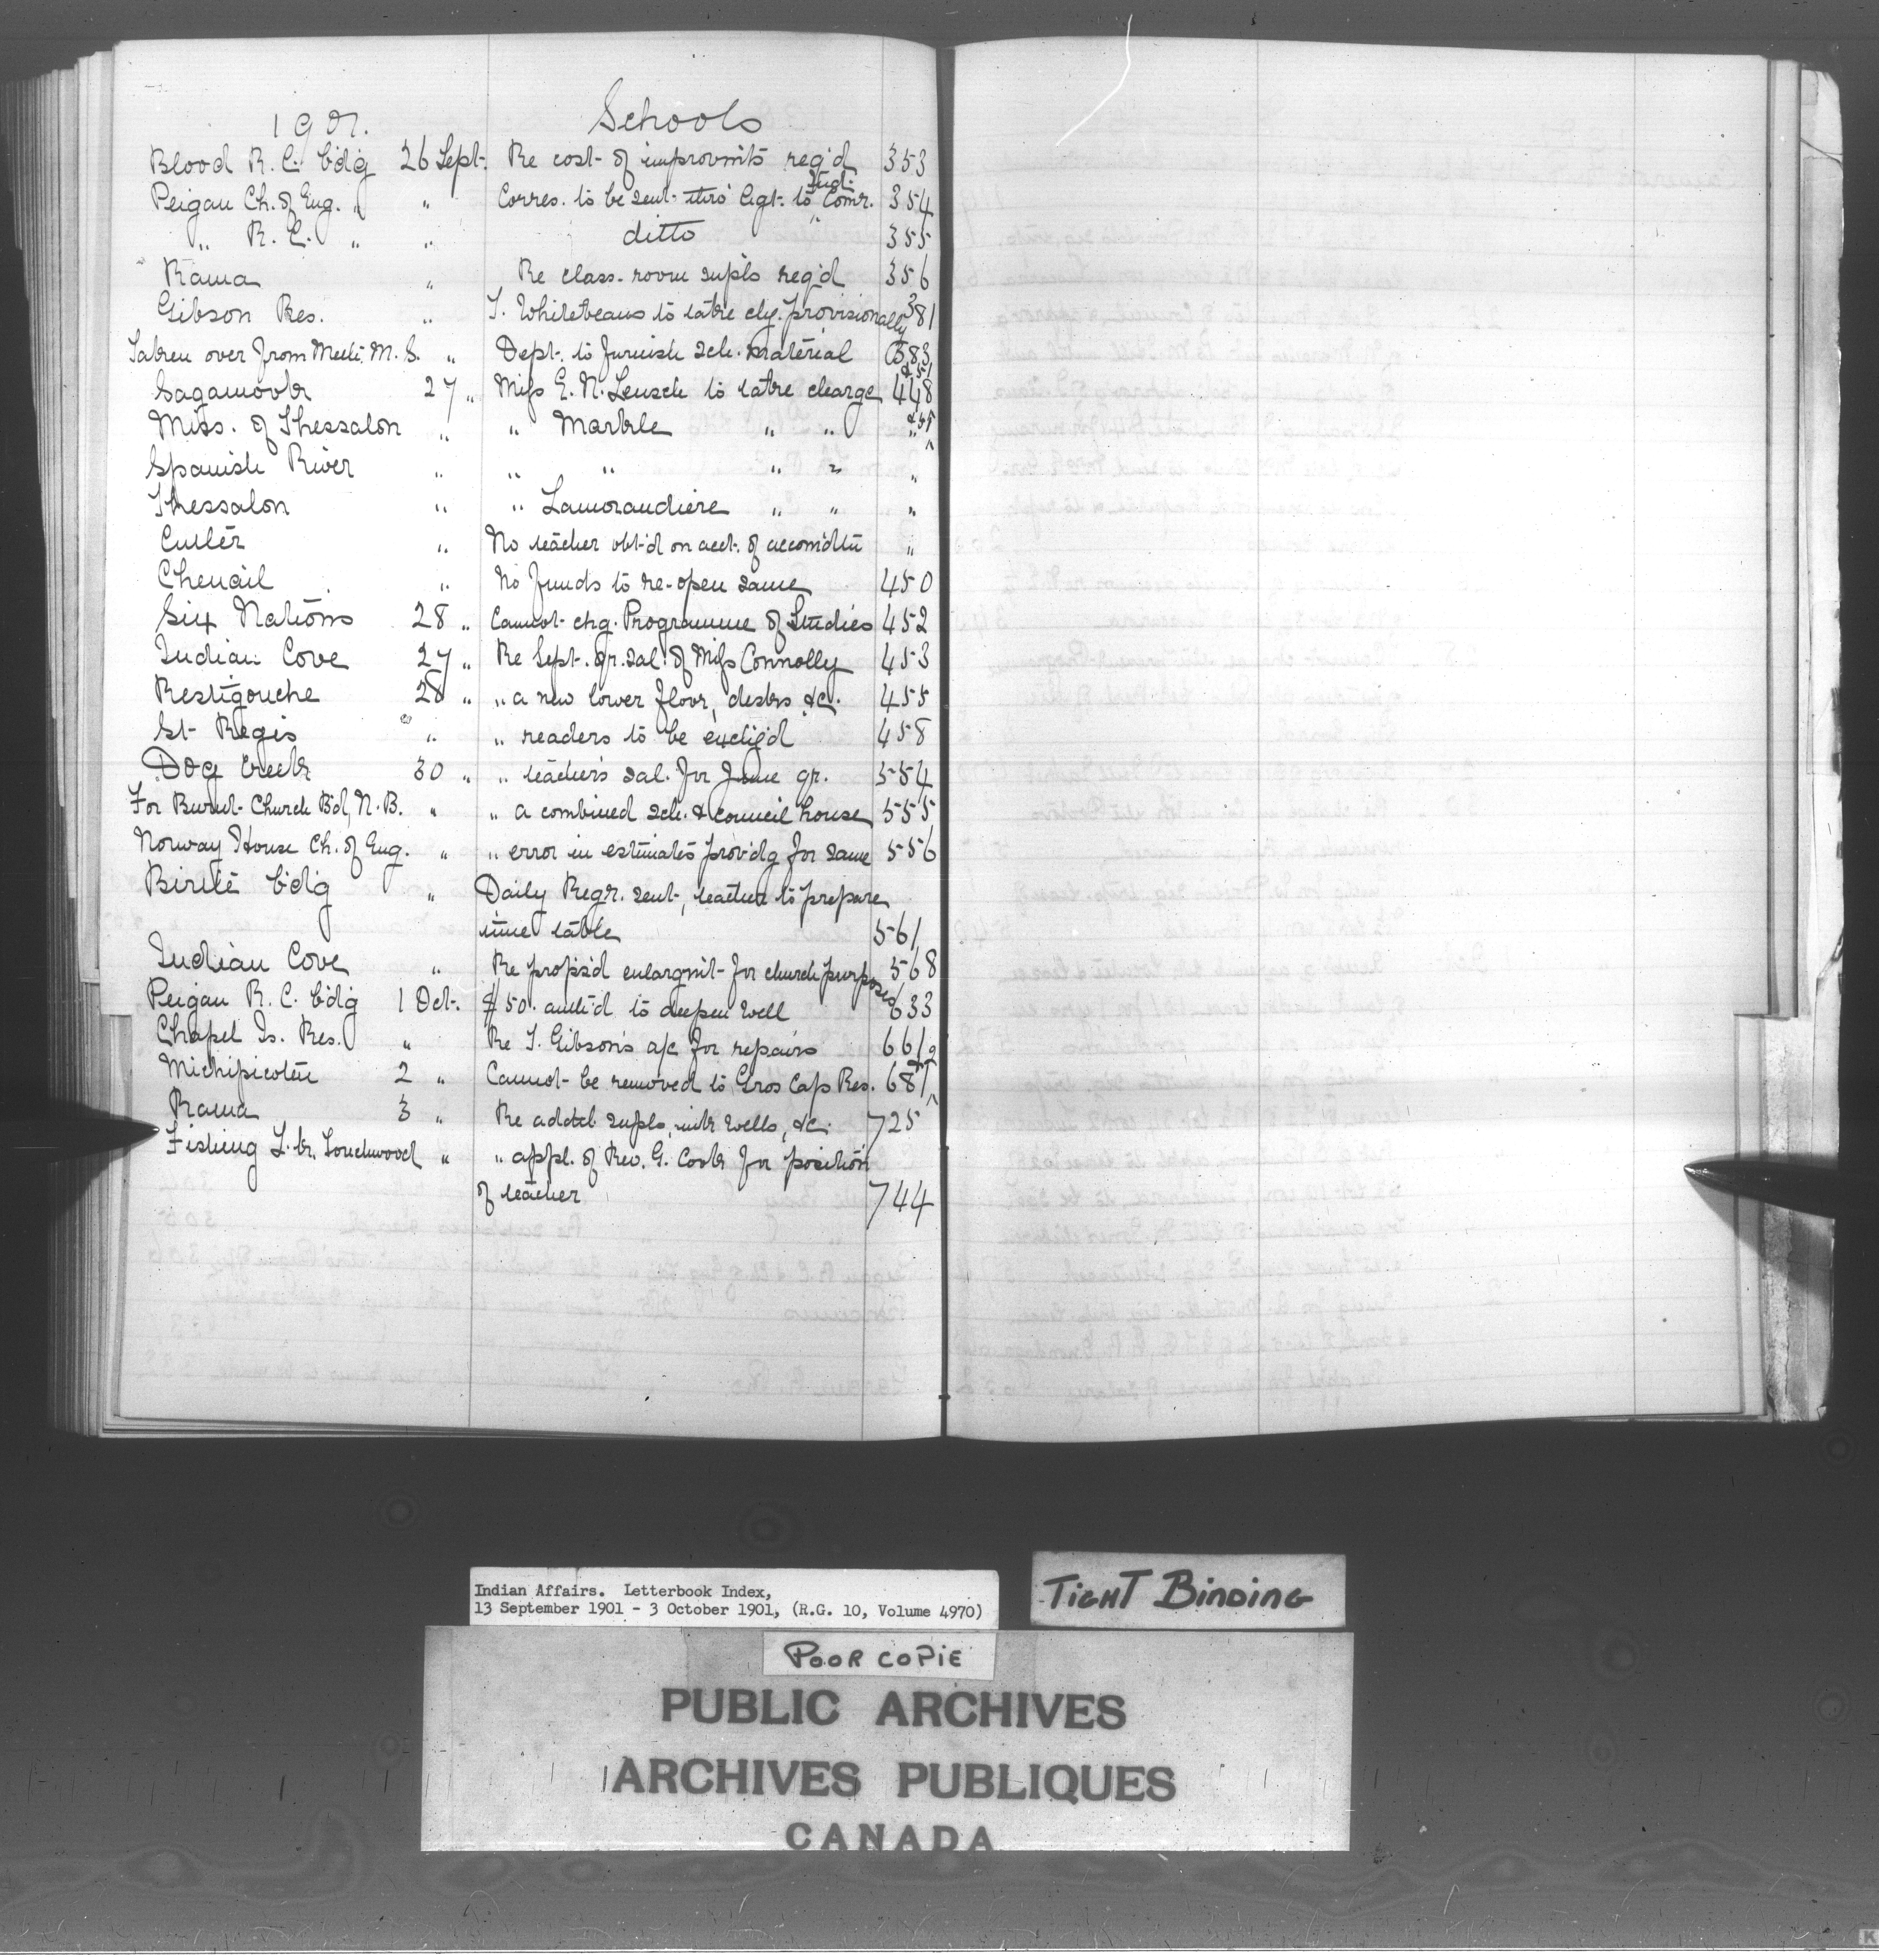 1901. Schools
Blood R. C. b'd'g 26 Sept. Re cost of improvm'ts req'd 353
Peigan Ch. of Eng. " " Corres. to be sent thro' Agt. to Ind. Comr. 354
" R. C. " " ditto 355
Rama " Re class-room supls req'd 356
Gibson Res. " to take chg. provisionally 381
Taken over from Meth. M. S. " Dept. to furnish sch. material 383
Sagamook 27 " Miss E. N. to take charge 448
Miss. of Thessalon " " Markle " " "
Spanish River " " " " " "
Thessalon " " Lamorandiere " " "
Cutler " No teacher obt'd on acct. of accom'dtn "
Chenail " No funds to re-open same 450
Six Nations 28 " Cannot chg. Programme of Studies 452
Indian Cove 27 " Re Sept. qr. sal. of Miss Connolly 453
Restigouche 28 " " a new lower floor, desks &c. 455
St. Regis " " " readers to be exch'g'd 458
Dog Creek 30 " " teacher's sal. for June qr. 554
For Burnt Church Bd, N. B. " " a combined sch. & council house 555
Norway House Ch. of Eng. " " error in estimates prov'dg for same 556
Birtle b'd'g " Daily Regr. sent, teacher to prepare
time table 561
Indian Cove " Re propos'd enlargm't for church purposes 568
Peigan R. C. b'd'g 1 Oct. $50. auth'd to deepen well 633
Chapel Is. Res. " Re J. Gibson's a/c for repairs 661
Michipicoten 2 " Cannot be removed to Gros Cap Res. 687
Rama 3 " Re addtl supls, ink wells, &c. 725
Fishing L. Touchwood " " appl. of Rev. G. Cook for position
of teacher 744
Indian Affairs. Letterbook Index,
13 September 1901 - 3 October 1901, (R.G. 10, Volume 4970)
TIGHT BINDING
POOR COPIE
PUBLIC ARCHIVES
ARCHIVES PUBLIQUES
CANADA